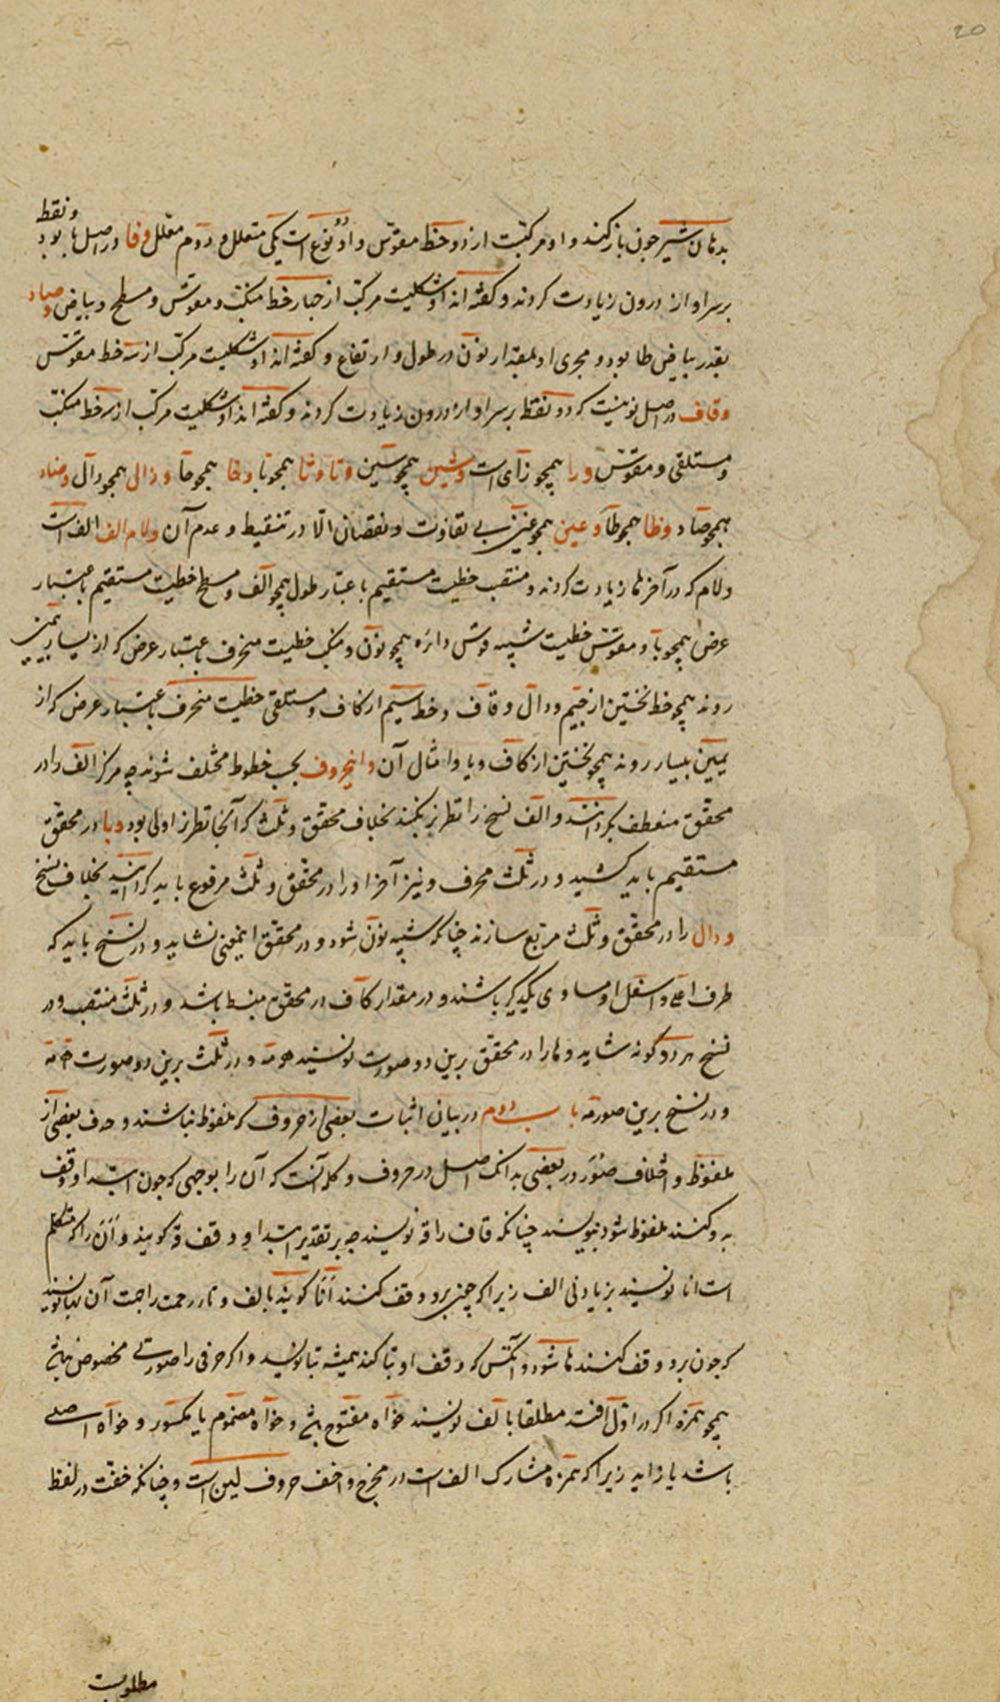 20
و نقط
بدهان شیر چون باز کند و او مرکبت از دو خط مقوس و او دو نوع است یکی متعلل و دوم معلل وفا در اصل با بود
بر سر او از درون زیادت کردند و گفته اند او شکلیست مرکب از چهار خط منکب و مقوس و مسطح و بیاض و صاد
بقدر بیاض طا بود و مجری او بمقدار نون در طول و ارتفاع و گفته اند او شکلیست مرکب از سه خط مقوس
وقاف در اصل نونیست که دو نقطه بر سر او از درون زیادت کردند و گفته اند او شکلیست مرکب از سه خط منکب
و مستلقی و مقوس ورا همچو زای است وشین همچو سین وتا وثا همچو با وخا همچو حا وذال همچو دال وضاد
همچو صاد وظا همچو طا وعین همچو غین بی تفاوت و نقصان الا در تنقیط و عدم آن ولام الف الف است
و لام که در آخر ها زیادت کردند و منتصب خطیست مستقیم باعتبار طول همچو الف و مسطح خطیست مستقیم باعتبار
عرض همچو با و مقوس خطیست شبیه قوس دایره همچو نون و منکب خطیست منحرف باعتبار عرض که از یسار بیمین
روند همچو خط نخستین از جیم و دال و قاف و خط سیم از کاف و مستلقی خطیست منحرف باعتبار عرض که از
یمین بیسار روند همچو نخستین از کاف و یا و امثال آن و اینحروف بحسب خطوط مختلف شوند چه مرکز الف را در
محقق منعطف نگردانند و الف نسخ را تطریز نکنند بخلاف محقق و ثلث که آنجا تطرز اولی بود وبا در محقق
مستقیم باید کشید و در ثلث محرف و نیز آخر او را در محقق و ثلث مرفوع باید گردانید بخلاف نسخ
ودال را در محقق و ثلث مربع سازند چنانکه شبیه نون شود و در محقق اینمعنی نشاید و در نسخ باید که
طرف اعلی و اسفل او مساوی یکدیگر باشند و در مقدار کاف در محقق منبسط باشد و در ثلث منتصب و در
نسخ هر دو گونه شاید و ها را در محقق برین دو صورت نویسند و در ثلث برین دو صورت
و در نسخ برین صورة باب دوم در بیان اثبات بعضی از حروف که ملفوظ نباشند و حذف بعضی از
ملفوظ و اختلاف صور در بعضی بدانک اصل در حروف و کلم آنست که آن را بوجهی که چون ابتدا و وقف
بدو کنند ملفوظ شود بنویسند چنانکه قاف را قه نویسند چه بر تقدیر ابتدا و وقف قه گویند و ان را که متکلم
است انا نویسند بزیادتی الف زیرا که چون برو وقف کنند انا گویند بالف و تا در رحمت راجت آن بها نویسند
که چون برو وقف کنند ها شود و آنکس که وقف او بتا کند همیشه بتا نویسد و اگر حرفی را صورتی مخصوص نباشد
همچو همزه اگر در اول افتد مطلقا بالف نویسند خواه مفتوح باشد و خواه مضموم یا مکسور و خواه اصلی
باشد یا زاید زیرا که همزه مشارک الف است در مخرج و اخف حروف لین است و چنانکه خفت در لفظ
مطلوبست